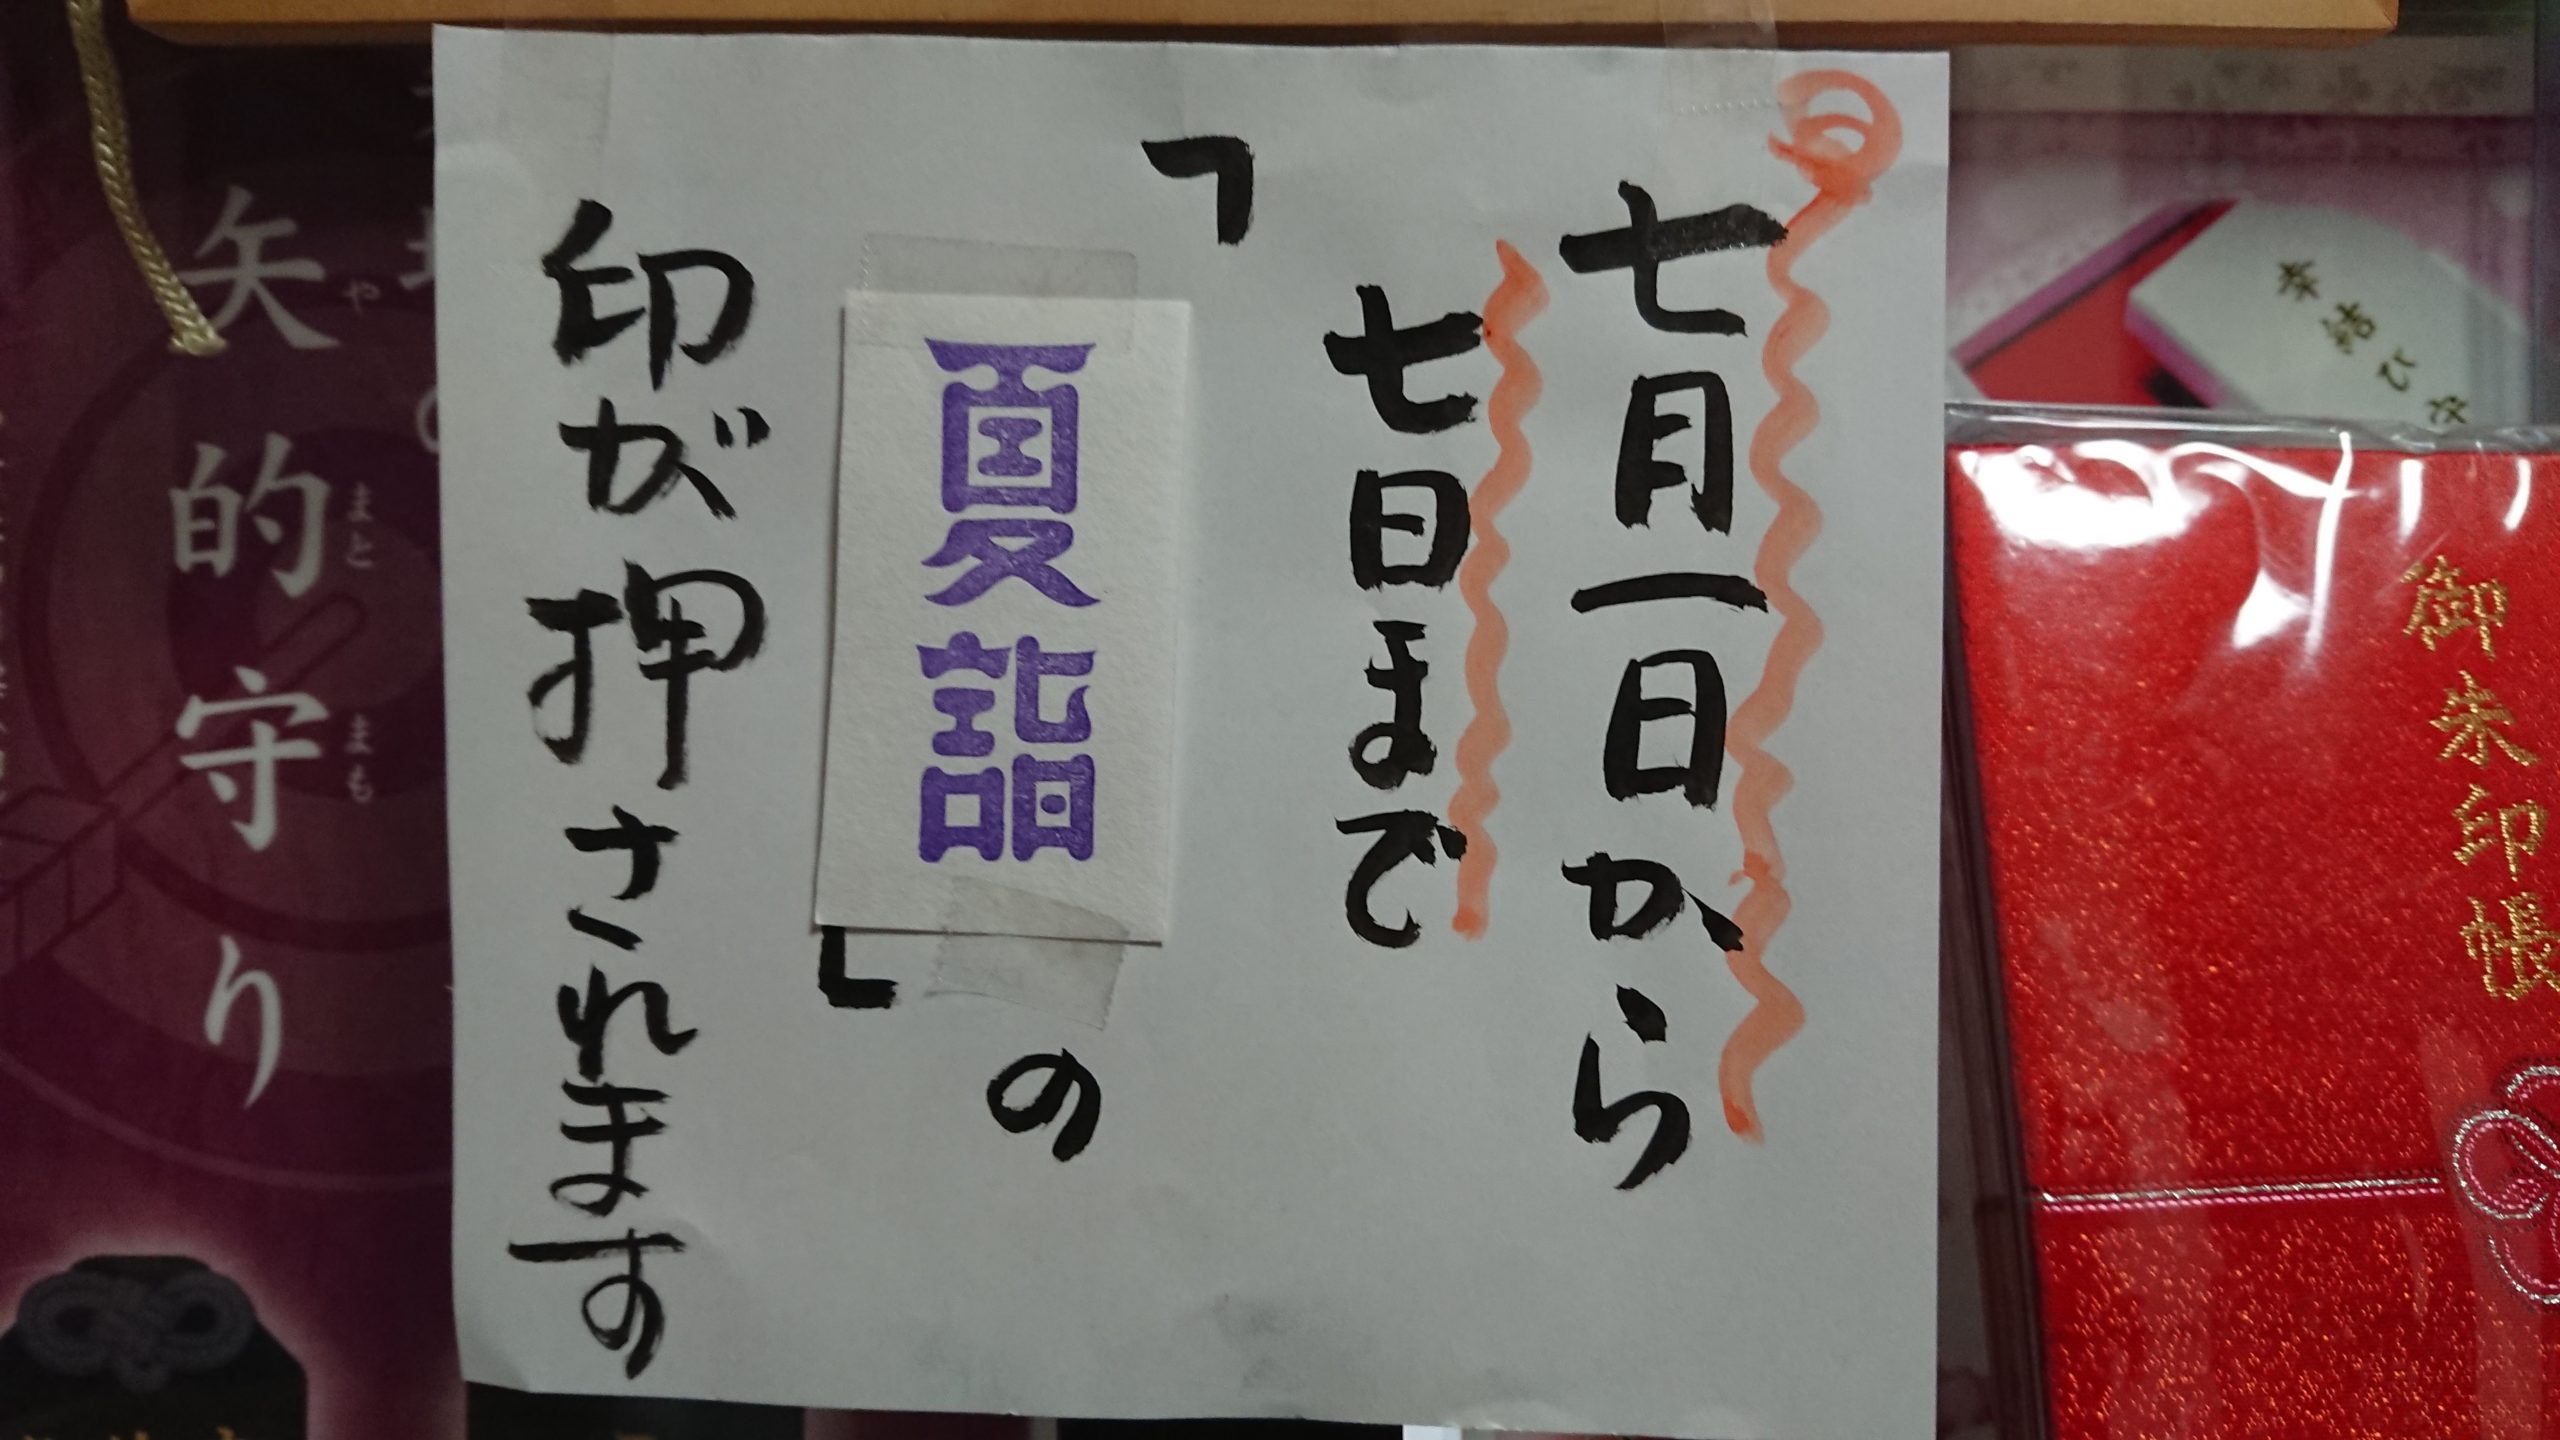 七月一日から
七日まで
「夏詣」の
印が押されます
御朱印帳
本結び守
矢的守り
や
まと
まも